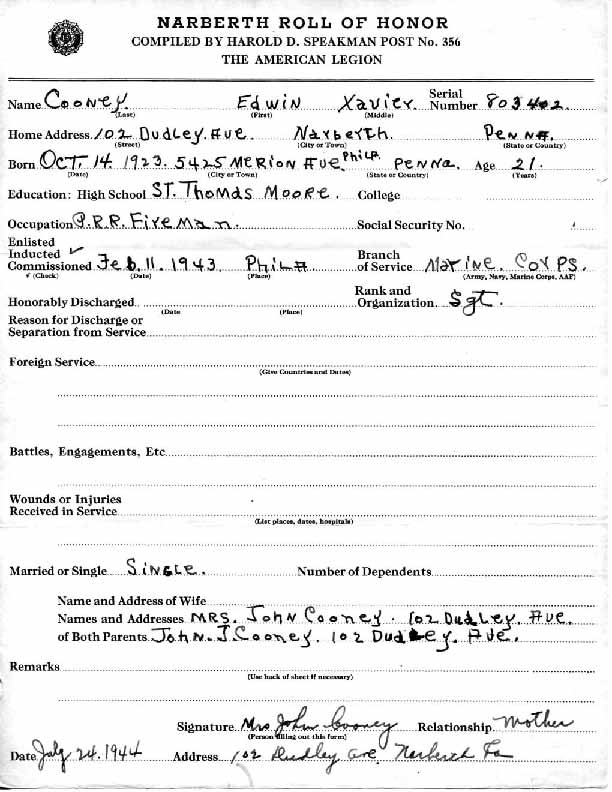 NARBERTH ROLL OF HONOR
COMPILED BY HAROLD D. SPEAKMAN POST No. 356
THE AMERICAN LEGION
Name Cooney Edwin Xavier Serial Number 803402
(Last) (First) (Middle)
Home Address 102 Dudley Ave Narberth. Penna.
(Street) (City or Town) (State or Country)
Born Oct. 14. 1923. 5425 Merion Ave. Phila Penna. Age 21.
(Date) (City or Town) (State or Country) (Years)
Education: High School St. Thomas Moore. College
Occupation P.R.R. Fireman. Social Security No.
Enlisted
Inducted ✓
Commissioned Feb. 11. 1943 Phila Branch of Service Marine. Corps.
✓ (Check) (Date) (Place) (Army, Navy, Marine Corps, AAF)
Honorably Discharged Rank and Organization Sgt.
(Date (Place)
Reason for Discharge or
Separation from Service
Foreign Service
(Give Countries and Dates)
Battles, Engagements, Etc
Wounds or Injuries
Received in Service
(List places, dates, hospitals)
Married or Single Single. Number of Dependents
Name and Address of Wife
Names and Addresses Mrs. John Cooney. 102 Dudley. Ave.
of Both Parents John. J. Cooney. 102 Dudley. Ave.
Remarks
(Use back of sheet if necessary)
Signature Mrs John Cooney Relationship Mother
(Person filling out this form)
Date July 24. 1944 Address 102 Dudley ave Narberth Pa